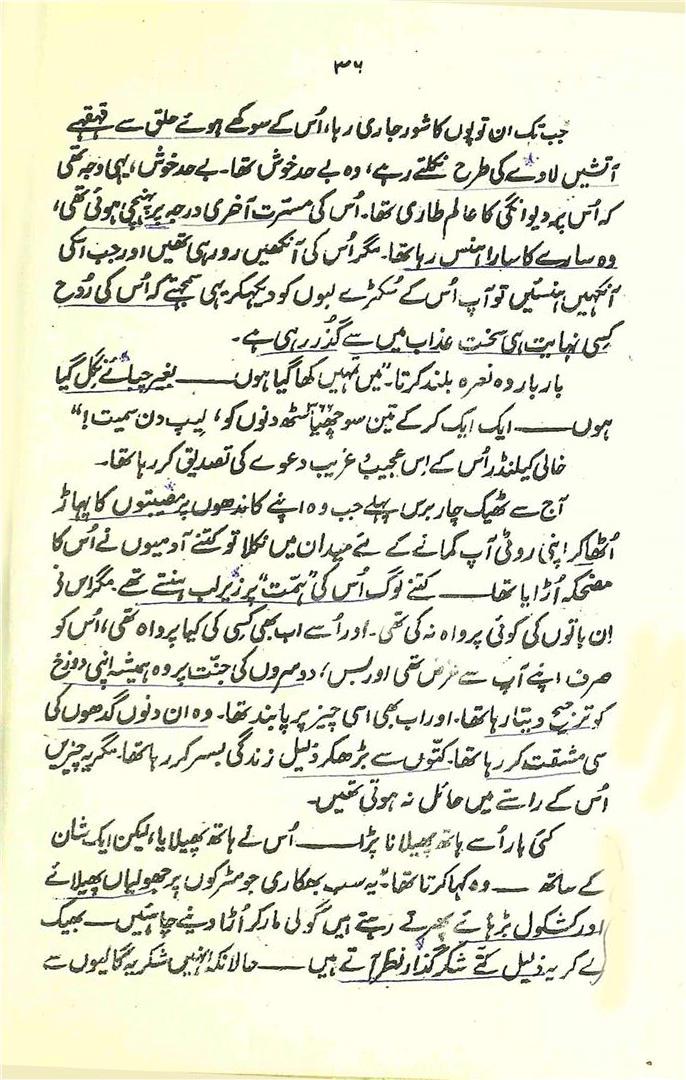 ۳۶
جب تک ان توپوں کا شور جاری رہا، اُس کے سوکھے ہوئے حلق سے قہقہے
آتشیں لاوے کی طرح نکلتے رہے، وہ بے حد خوش تھا۔ بے حد خوش، یہی وجہ تھی
کہ اُس پر دیوانگی کا عالم طاری تھا۔ اُس کی مسرّت آخری درجہ پر پہنچی ہوئی تھی،
وہ سارے کا سارا ہنس رہا تھا۔ مگر اُس کی آنکھیں رو رہی تھیں اور جب اسکی
آنکھیں ہنستیں تو آپ اُس کے سُکڑے لبوں کو دیکھکر یہی سمجھتے کہ اُس کی رُوح
کِسی نہایت ہی سخت عذاب میں سے گذر رہی ہے۔
بار بار وہ نعرہ بلند کرتا۔ "میں تمہیں کھا گیا ہوں —— بغیر چبائے نِگل گیا
ہوں —— ایک ایک کر کے تین سو چھیاسٹھ دنوں کو، لیپ دن سمیت!"
خالی کیلنڈر اُس کے اِس عجیب و غریب دعوے کی تصدیق کر رہا تھا۔
آج سے ٹھیک چار برس پہلے جب وہ اپنے کاندھوں پر مصیبتوں کا پہاڑ
اُٹھا کر اپنی روٹی آپ کمانے کے لئے میدان میں نکلا تو کتنے آدمیوں نے اُس کا
مضحکہ اُڑایا تھا —— کتنے لوگ اُس کی "ہمّت" پر زیرِ لب ہنستے تھے۔ مگر اس نے
اِن باتوں کی کوئی پرواہ نہ کی تھی۔ اور اُسے اب بھی کِسی کی کیا پرواہ تھی، اُس کو
صرف اپنے آپ سے غرض تھی اور بس، دوسروں کی جنّت پر وہ ہمیشہ اپنی دوزخ
کو ترجیح دیتا رہا تھا۔ اور اب بھی اسی چیز پر پابند تھا۔ وہ ان دنوں گدھوں کی
سی مشقت کر رہا تھا۔ کتّوں سے بڑھکر ذلیل زندگی بسر کر رہا تھا۔ مگر یہ چیزیں
اُس کے راستے میں حائل نہ ہوتی تھیں۔
کئی بار اُسے ہاتھ پھیلانا پڑا —— اُس نے ہاتھ پھیلایا، لیکن ایک شان
کے ساتھ —— وہ کہا کرتا تھا۔ "یہ سب بھکاری جو سڑکوں پر جھولیاں پھیلائے
اور کشکول بڑھائے پھرتے رہتے ہیں گولی مار کر اُڑا دینے چاہئیں —— بھیک
لے کر یہ ذلیل کتنے شکر گذار نظر آتے ہیں —— حالانکہ انہیں شکریہ گالیوں سے